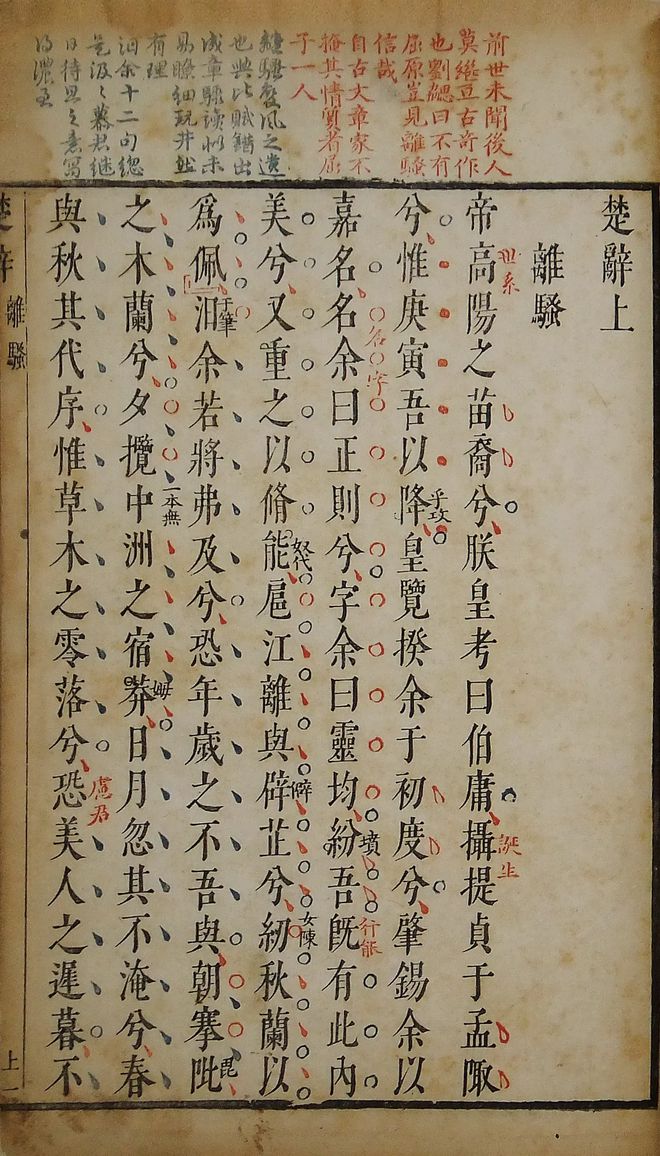 前世未聞後人
莫繼亘古奇作
也劉勰曰不有
屈原豈見離騷
信哉
自古文章家不
掩其情實者屈
子一人
離騷變風之遺
也興比賦錯出
成章驟讀似未
易瞭細玩井然
有理
汩余十二句總
是汲〻慕君継
日待旦之意寫
得濃至
楚辭上
離騷
世系
誕生
帝高陽之苗裔兮朕皇考曰伯庸攝提貞于孟陬
乎攻
兮惟庚寅吾以降皇覽揆余于初度兮肇錫余以
名
字
墳
行能
嘉名名余曰正則兮字余曰靈均紛吾旣有此內
奴代
僻
女陳
美兮又重之以脩能扈江離與辟芷兮紉秋蘭以
于筆
毘
爲佩汩余若將弗及兮恐年歲之不吾與朝搴阰
一本無
姆
之木蘭兮夕攬中洲之宿莽日月忽其不淹兮春
慮君
與秋其代序惟草木之零落兮恐美人之遲暮不
楚辭 離騷 上一